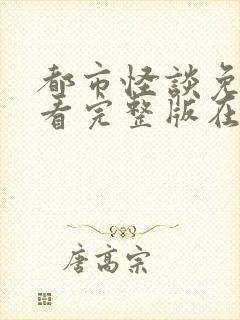 都市怪談免
看完整版在
唐高宗